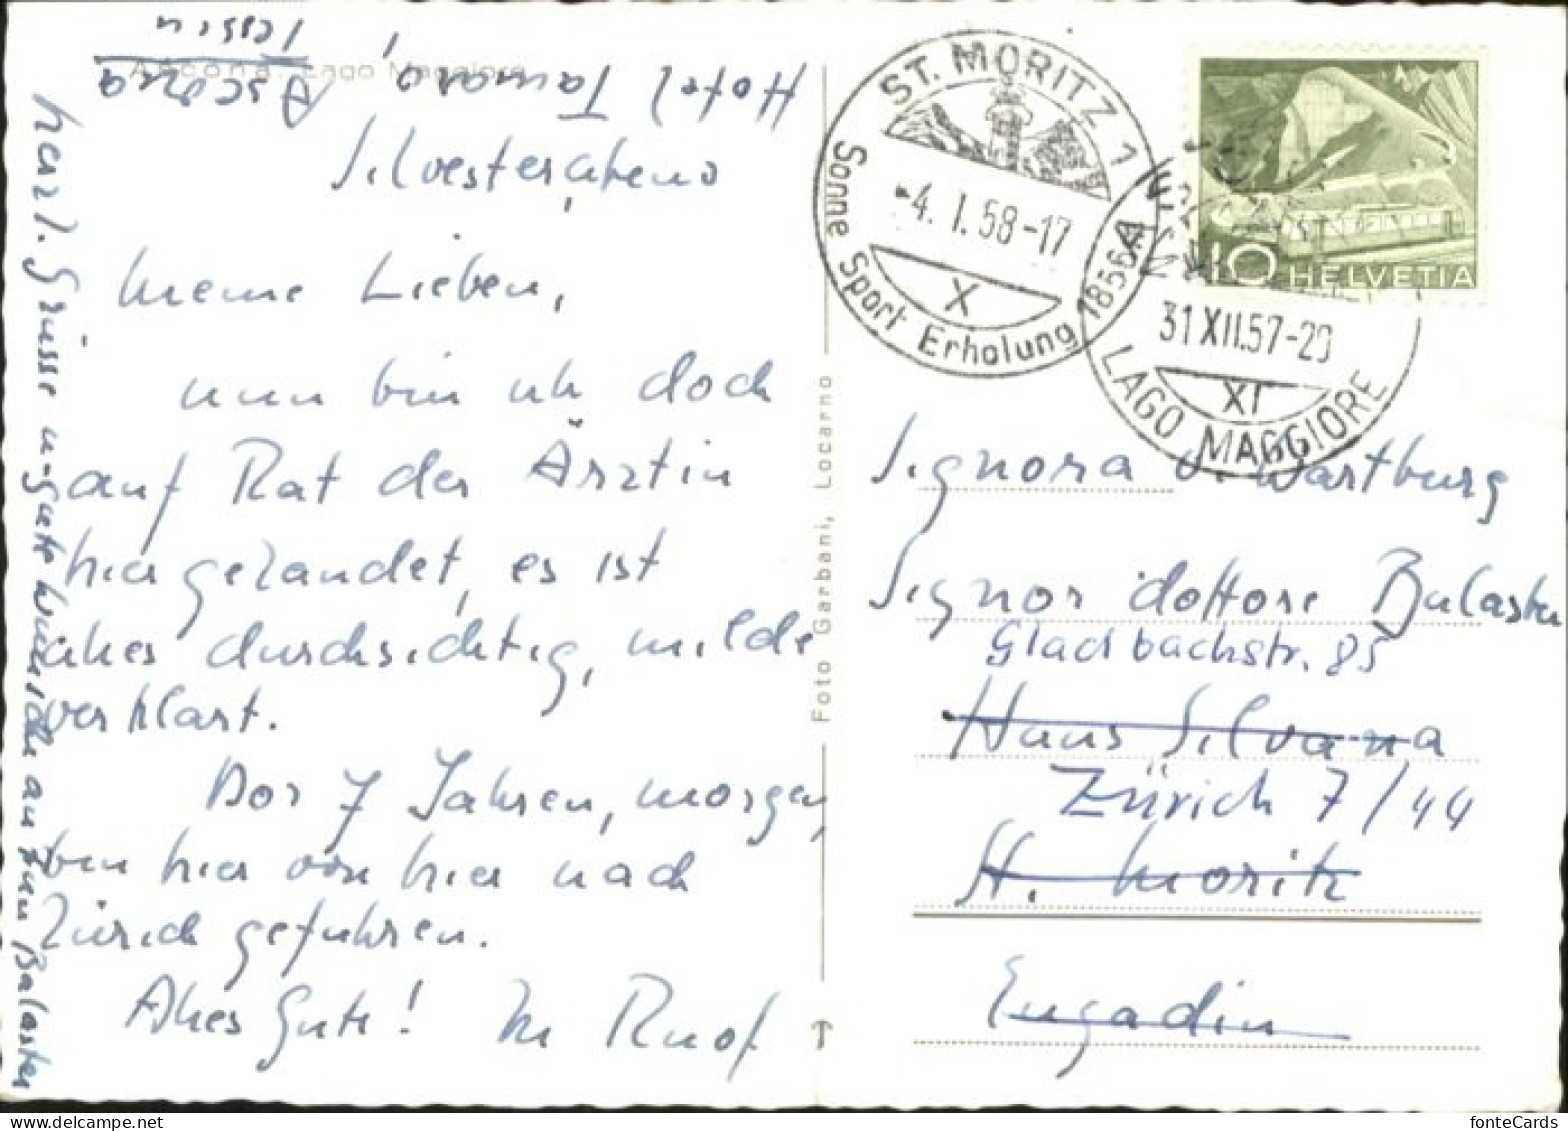 Ascona, Lago Maggiore
Hotel Tamaro, Ascona
Tessin
Silvesterabend
Meine Lieben,
nun bin ich doch
auf Rat der Ärztin
hier gelandet, es ist
alles durchsichtig, milde
verklärt.
Vor 7 Jahren, morgen,
bin hier von hier nach
Zürich gefahren.
Alles Gute! Ihr Ruof
herzl. Grüsse u. gute Wünsche an Balaster
Foto Garbani, Locarno
ST. MORITZ 1
-4. I. 58-17
X
Sonne Sport Erholung 1856 m
31 XII. 57-20
XI
LAGO MAGGIORE
10 HELVETIA
Signora v. Wartburg
Signor dottore Bulaster
Gladbachstr. 85
Haus Silvana
Zürich 7/44
St. Moritz
Engadin
fonteCards